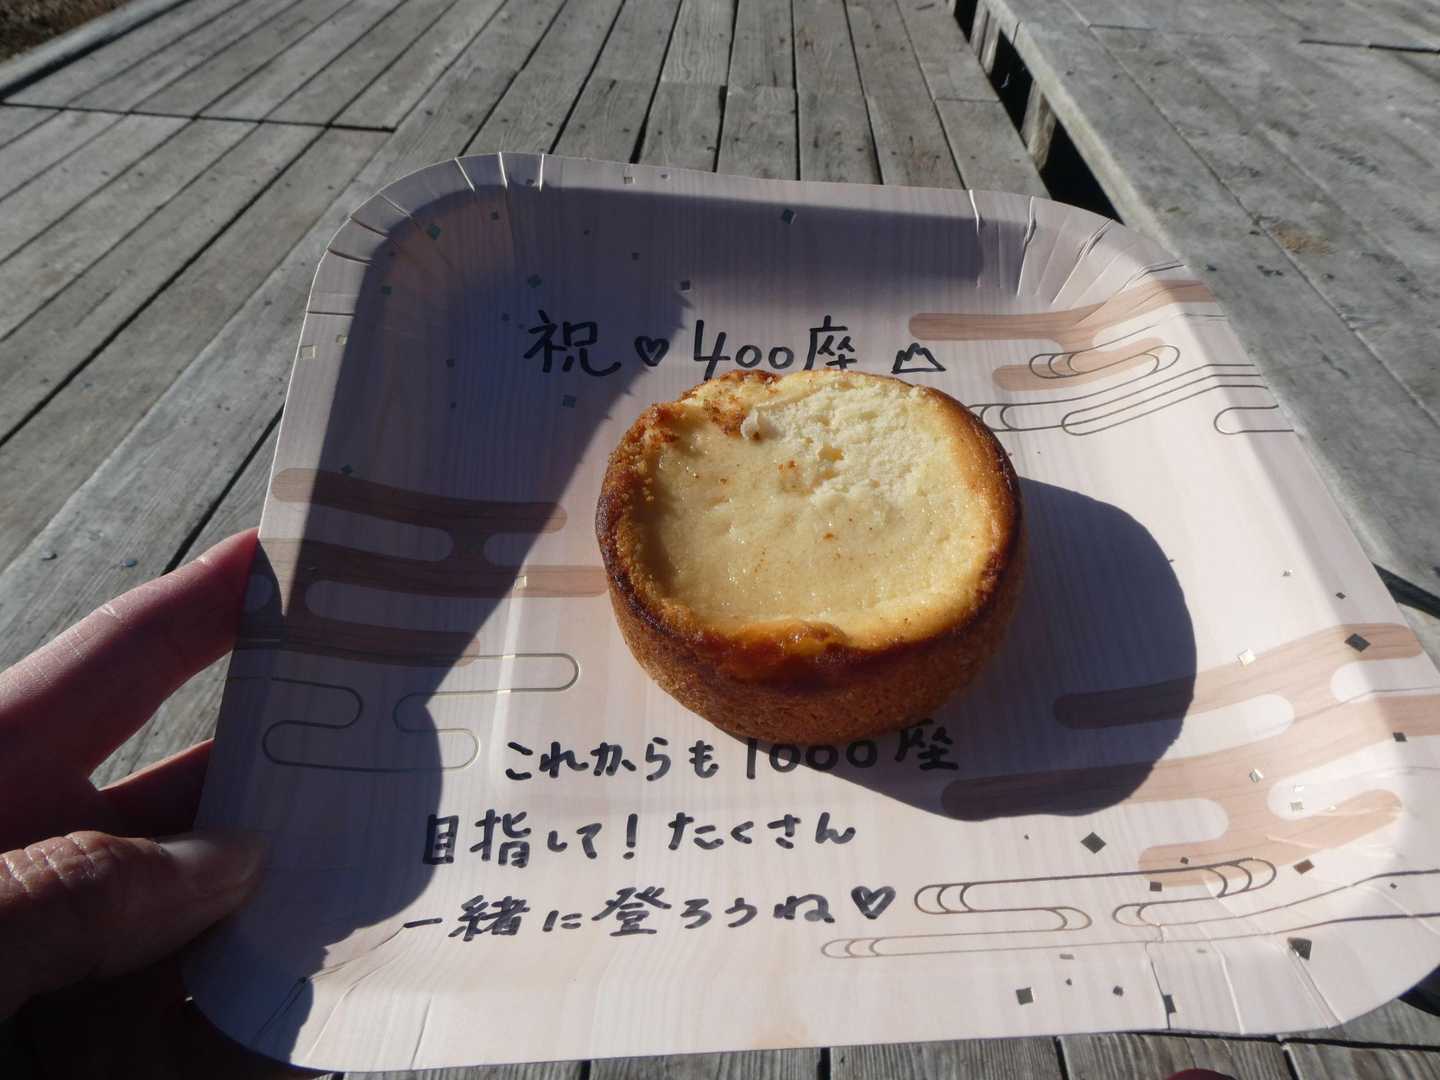 祝♡400座
これからも1000座
目指して！たくさん
一緒に登ろうね♡